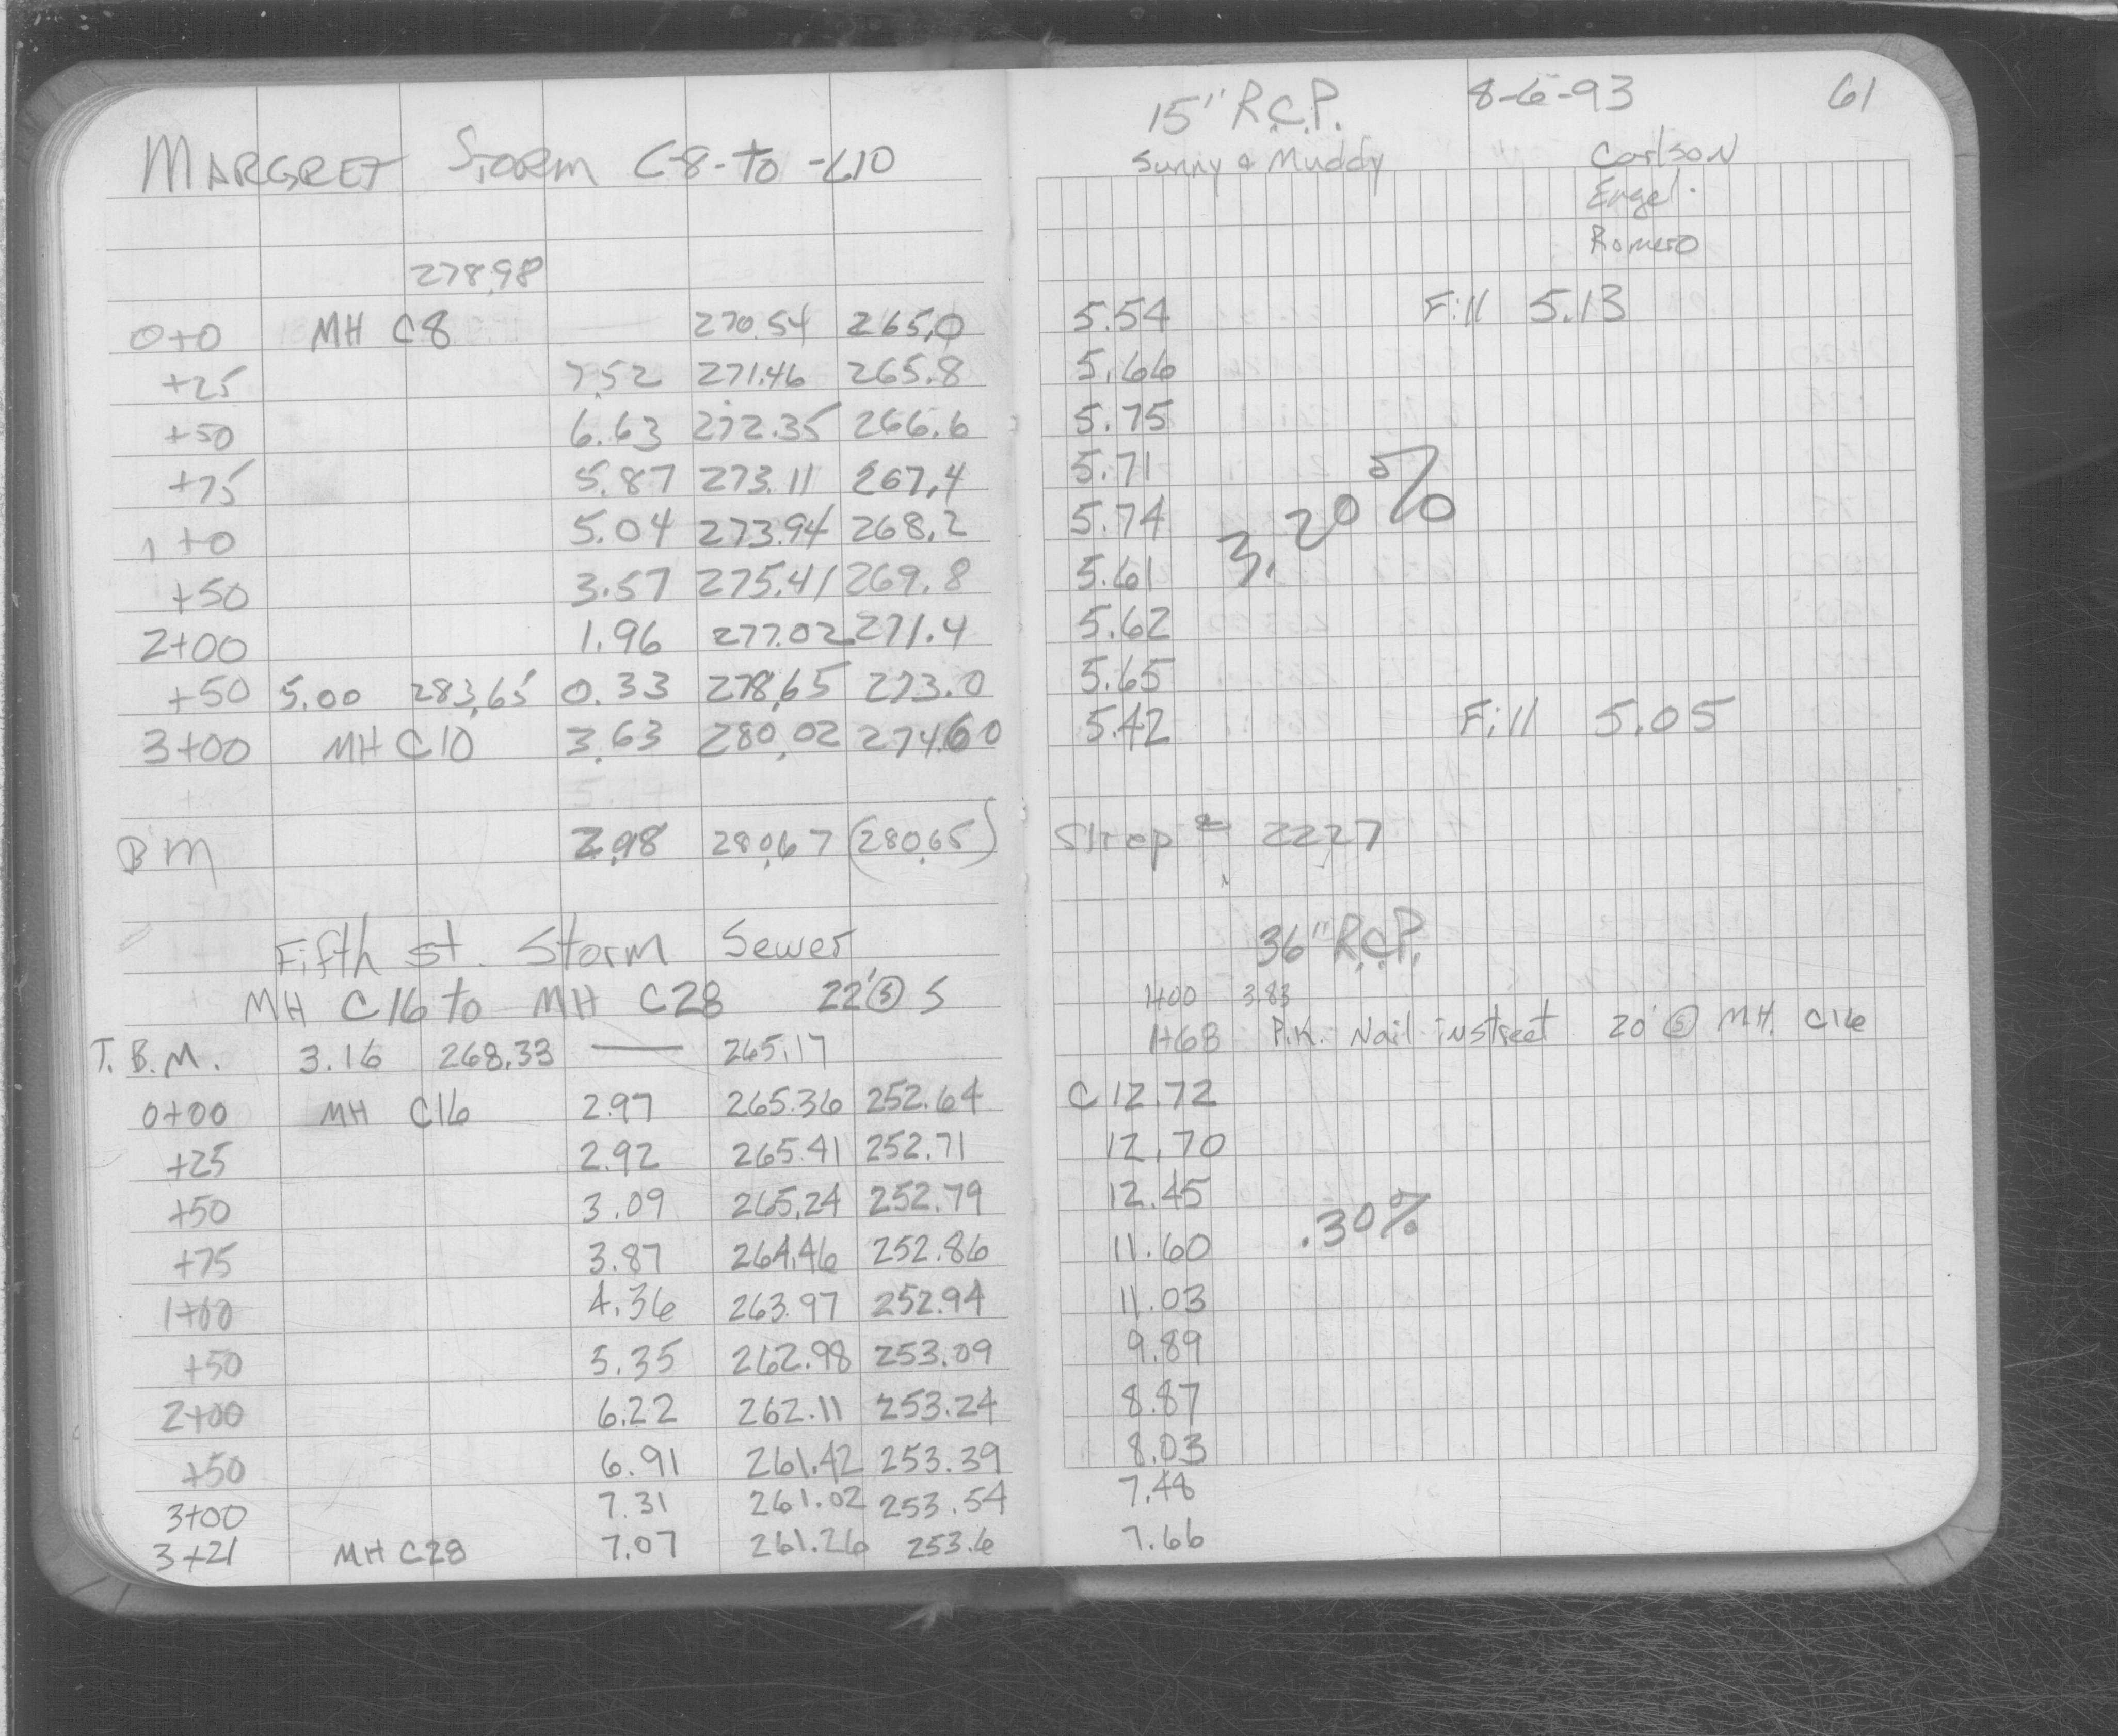 MARGRET STORM C-8-to-C10
278.98
0+0 MH C8 — 270.54 265.0
+25 7.52 271.46 265.8
+50 6.63 272.35 266.6
+75 5.87 273.11 267.4
1+0 5.04 273.94 268.2
+50 3.57 275.41 269.8
2+00 1.96 277.02 271.4
+50 5.00 283.65 0.33 278.65 273.0
3+00 MH C10 3.63 280.02 274.60
BM 2.98 280.67 (280.65)
Fifth St. Storm Sewer
MH C16 to MH C28 22' Ⓢ S
T.B.M. 3.16 268.33 — 265.17
0+00 MH C16 2.97 265.36 252.64
+25 2.92 265.41 252.71
+50 3.09 265.24 252.79
+75 3.87 264.46 252.86
1+00 4.36 263.97 252.94
+50 5.35 262.98 253.09
2+00 6.22 262.11 253.24
+50 6.91 261.42 253.39
3+00 7.31 261.02 253.54
3+21 MH C28 7.07 261.26 253.6
15" R.C.P. 8-6-93 61
Sunny & Muddy Carlson
Engel.
Romero
5.54 Fill 5.13
5.66
5.75
5.71
5.74 3.20%
5.61
5.62
5.65
5.42 Fill 5.05
2227
36" R.C.P.
1+00 3.83
1+68 P.K. Nail in street 20' Ⓢ MH. C16
C 12.72
12.70
12.45
11.60 .30%
11.03
9.89
8.87
8.03
7.48
7.66